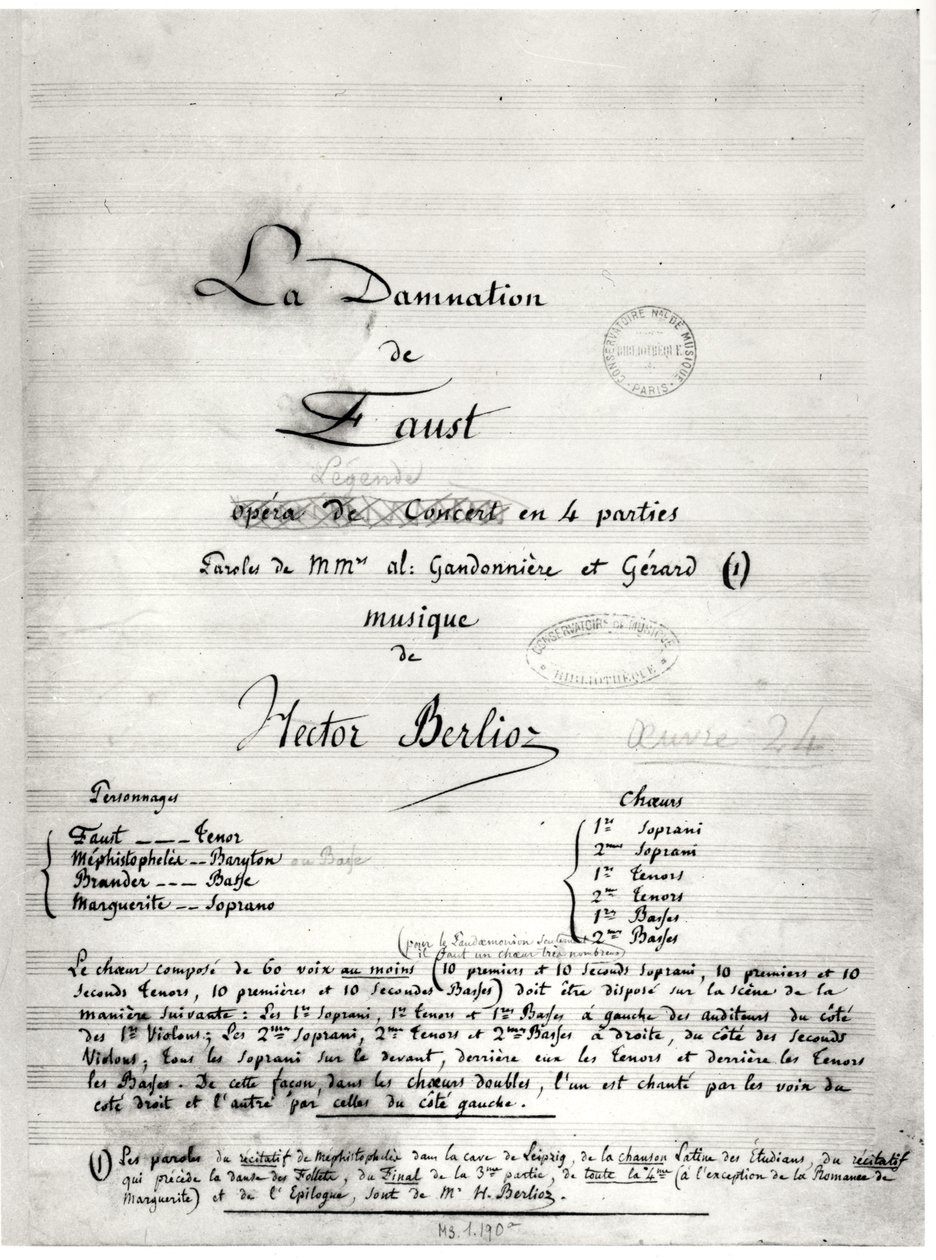 La Damnation
de
Faust
Légende
opéra de Concert en 4 parties
Paroles de MMrs al: Gandonnière et Gérard (1)
musique
de
Hector Berlioz
Œuvre 24
CONSERVATOIRE NAL DE MUSIQUE
BIBLIOTHÈQUE
PARIS
CONSERVATOIRE DE MUSIQUE
BIBLIOTHÈQUE
Personnages
Faust ___ Tenor
Méphistophelès -- Baryton ou Basse
Brander --- Basse
Marguerite -- Soprano
Chœurs
1ers Soprani
2mes Soprani
1ers Tenors
2mes Tenors
1res Basses
2mes Basses
(pour le Pandæmonion seulement
il faut un chœur très nombreux)
Le chœur composé de 60 voix au moins (10 premiers et 10 Seconds Soprani, 10 premiers et 10
Seconds Tenors, 10 premières et 10 Secondes Basses) doit être disposé sur la scène de la
manière suivante: Les 1ers Soprani, 1ers Tenors et 1res Basses à gauche des auditeurs du côté
des 1ers Violons; Les 2mes Soprani, 2mes Tenors et 2mes Basses à droite, du côté des Seconds
Violons; tous les Soprani sur le devant, derrière eux les Tenors et derrière les Tenors
les Basses. De cette façon, dans les chœurs doubles, l'un est chanté par les voix du
coté droit et l'autre par celles du côté gauche.
(1) Les paroles du récitatif de Mephistophelès dans la cave de Leipzig, de la chanson Latine des Étudians, du récitatif
qui précède la danse des Follets, du Final de la 3me partie, de toute la 4me (à l'exception de la Romance de
Marguerite) et de l'Epilogue, sont de Mr H. Berlioz.
MS.1.190a